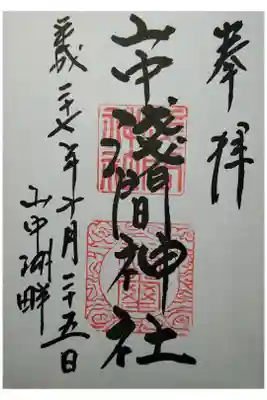 奉拝
山中淺間神社
平成二十七年十月二十五日
山中湖畔